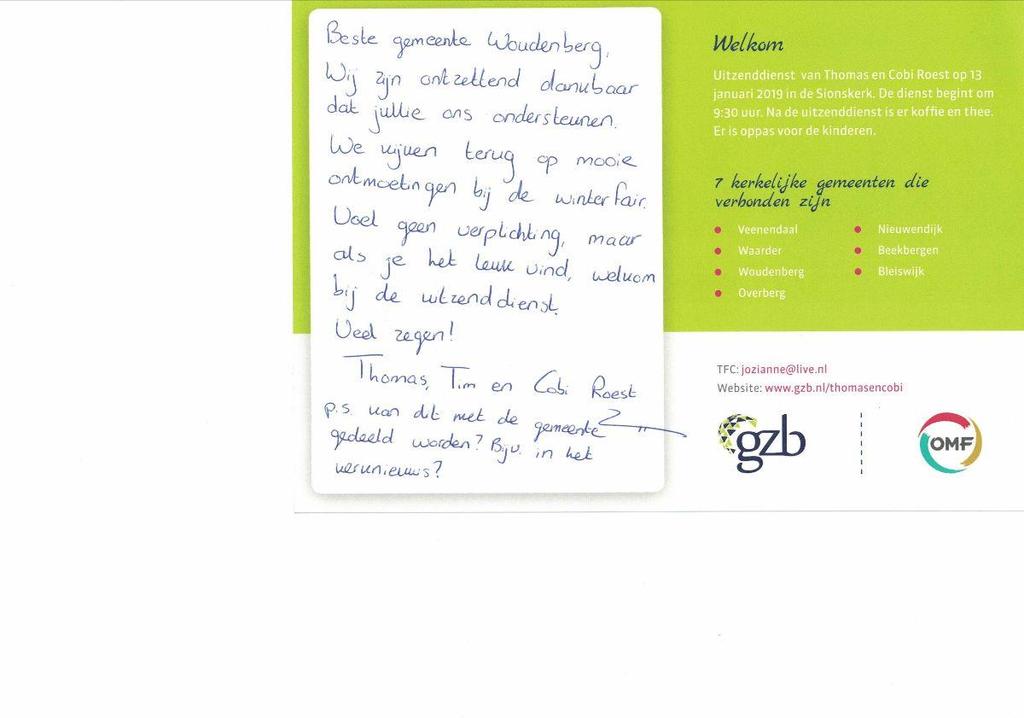 Beste gemeente Woudenberg,
Wij zijn ontzettend dankbaar
dat jullie ons ondersteunen.
We kijken terug op mooie
ontmoetingen bij de winterfair.
Voel geen verplichting, maar
als je het leuk vind, welkom
bij de uitzenddienst.
Veel zegen!
Thomas, Tim en Cobi Roest
p.s. kan dit met de gemeente
gedeeld worden? Bijv. in het
kerknieuws?
Welkom
Uitzenddienst van Thomas en Cobi Roest op 13
januari 2019 in de Sionskerk. De dienst begint om
9:30 uur. Na de uitzenddienst is er koffie en thee.
Er is oppas voor de kinderen.
7 kerkelijke gemeenten die
verbonden zijn
Veenendaal
Waarder
Woudenberg
Overberg
Nieuwendijk
Beekbergen
Bleiswijk
TFC: jozianne@live.nl
Website: www.gzb.nl/thomasencobi
gzb
OMF